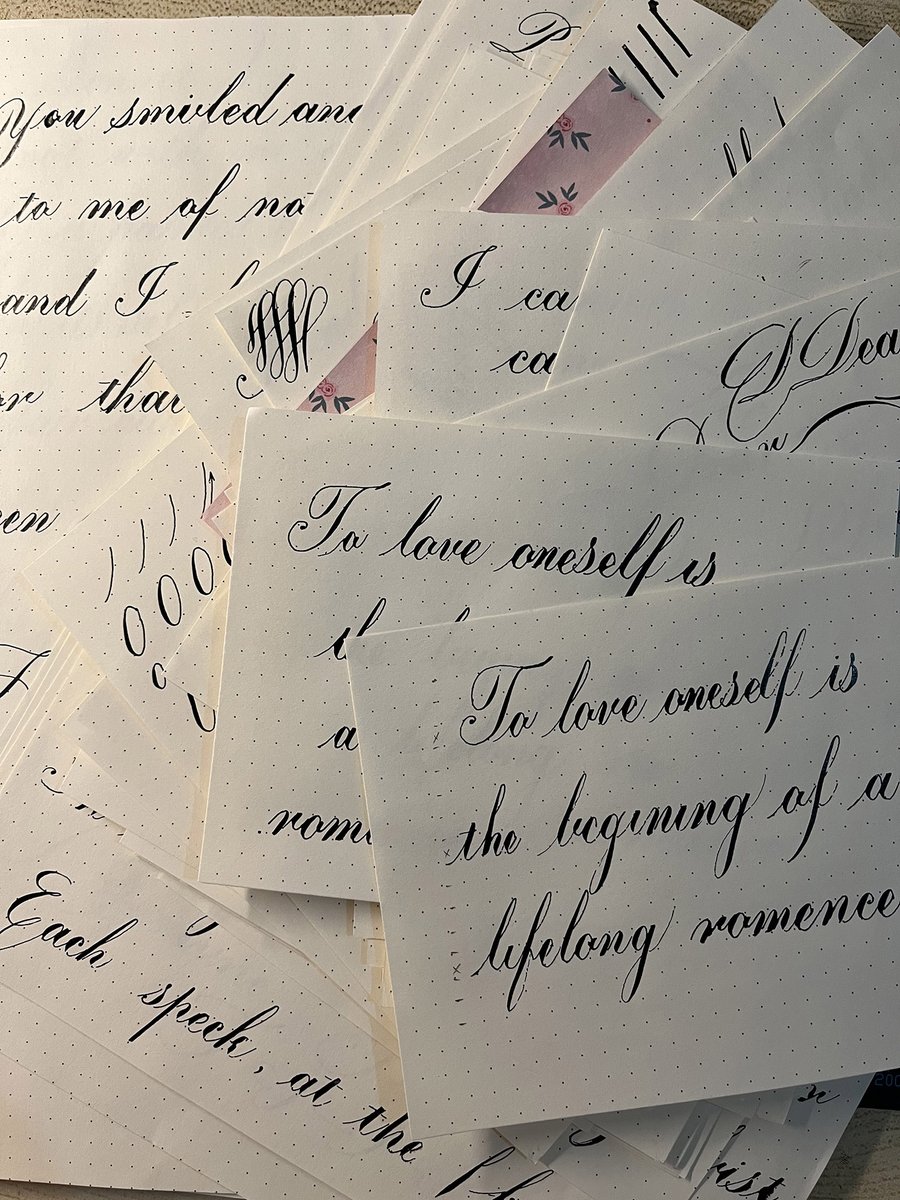 You smivled and
to me of no
and I
than
P
I ca
ca
Dea
To love oneself is
a
rom
To love oneself is
the begining of a
lifelong romence
Each
speck, at the